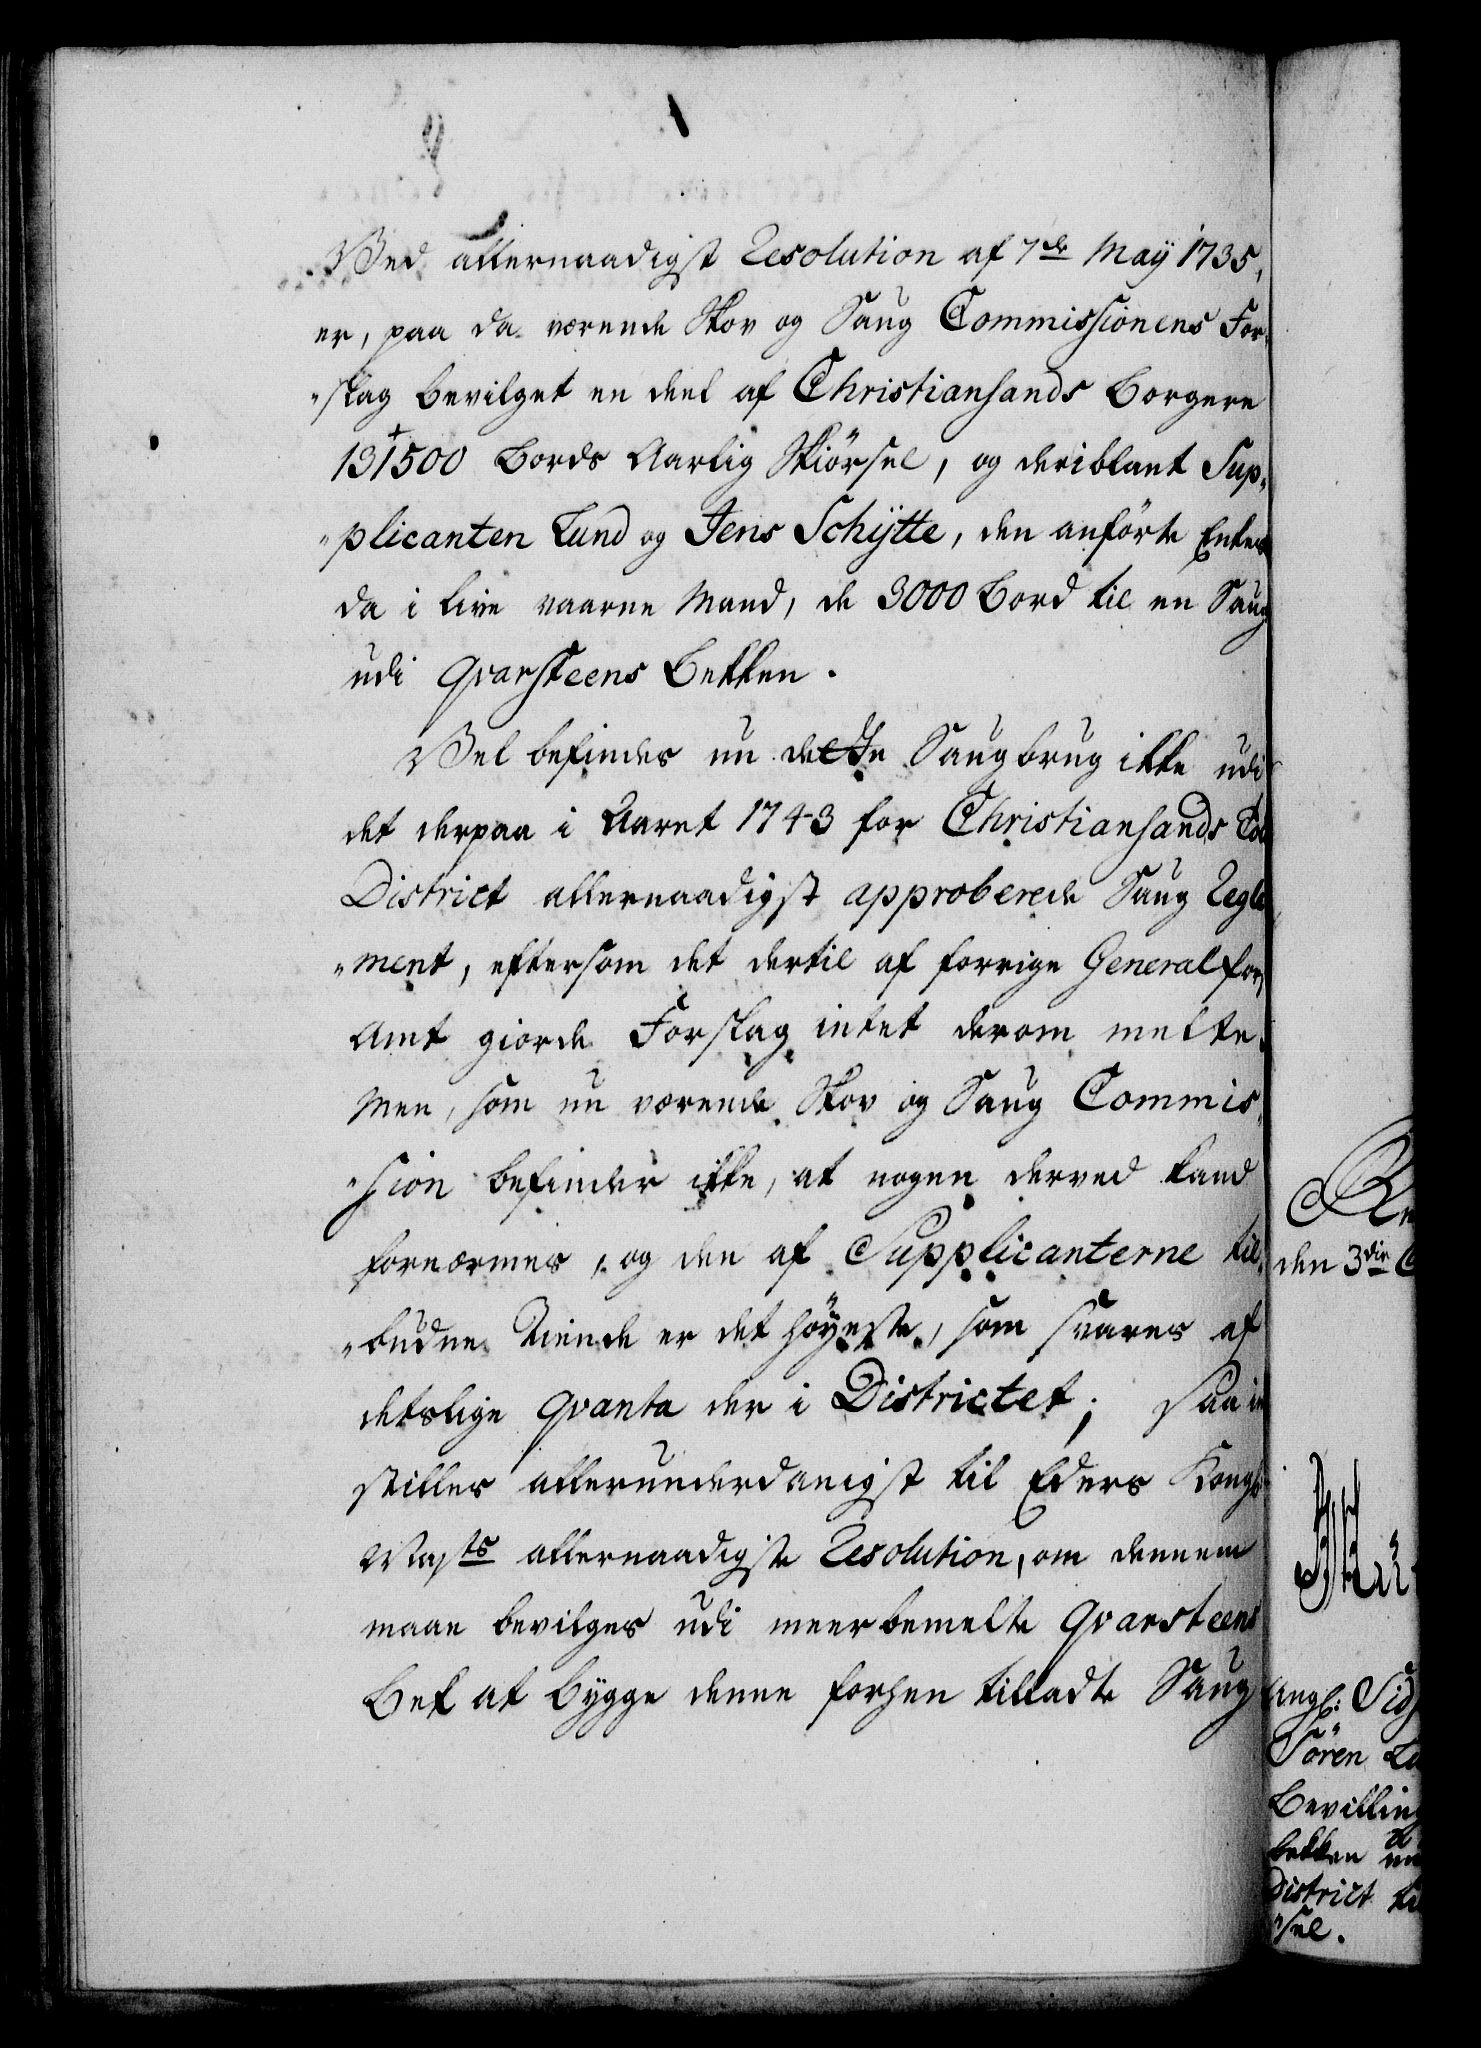 Ved allernaadigst Resolution af 7de Maÿ 1735,
er, paa da værende Skov og Saug Commissionens For-
"slag bevilget en deel af Christiansands Borgere
131500 Bords Aarlig Skiörsel, og deriblant Sup-
"plicanten Lund og Jens Schÿtte, den anförte Enkes
da i live værne Mand, de 3000 Bord til en Saug
udi Qvarsteens Bekken.
Vel befindes nu dette Saugbrug ikke udi
det derpaa i Aaret 1743 for Christiansands
District allernaadigst approberede Saug Regle
"ment, eftersom det dertil af forrige General for
Amt giorde Forslag intet derom melte.
Men, som nu værende Skov og Saug Commis-
"sion befinder ikke, at nogen derved kand
fornærmes, og den af Supplicanterne til-
"budne Tiende er det höyeste, som svares af
deslige Qvanta der i Districtet; saa in
stilles allerunderdanigst til Eders Kongl
Mayts allernaadigste Resolution, om dennem
maae bevilges udi meerbemelte Qvarsteens
Bek at bygge denne forhen tilladte Saug
den 3die
Sören
Bevilling
bekken
District
"sel.